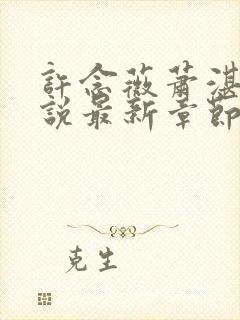 許念薇蕭湛
說最新章節
克生